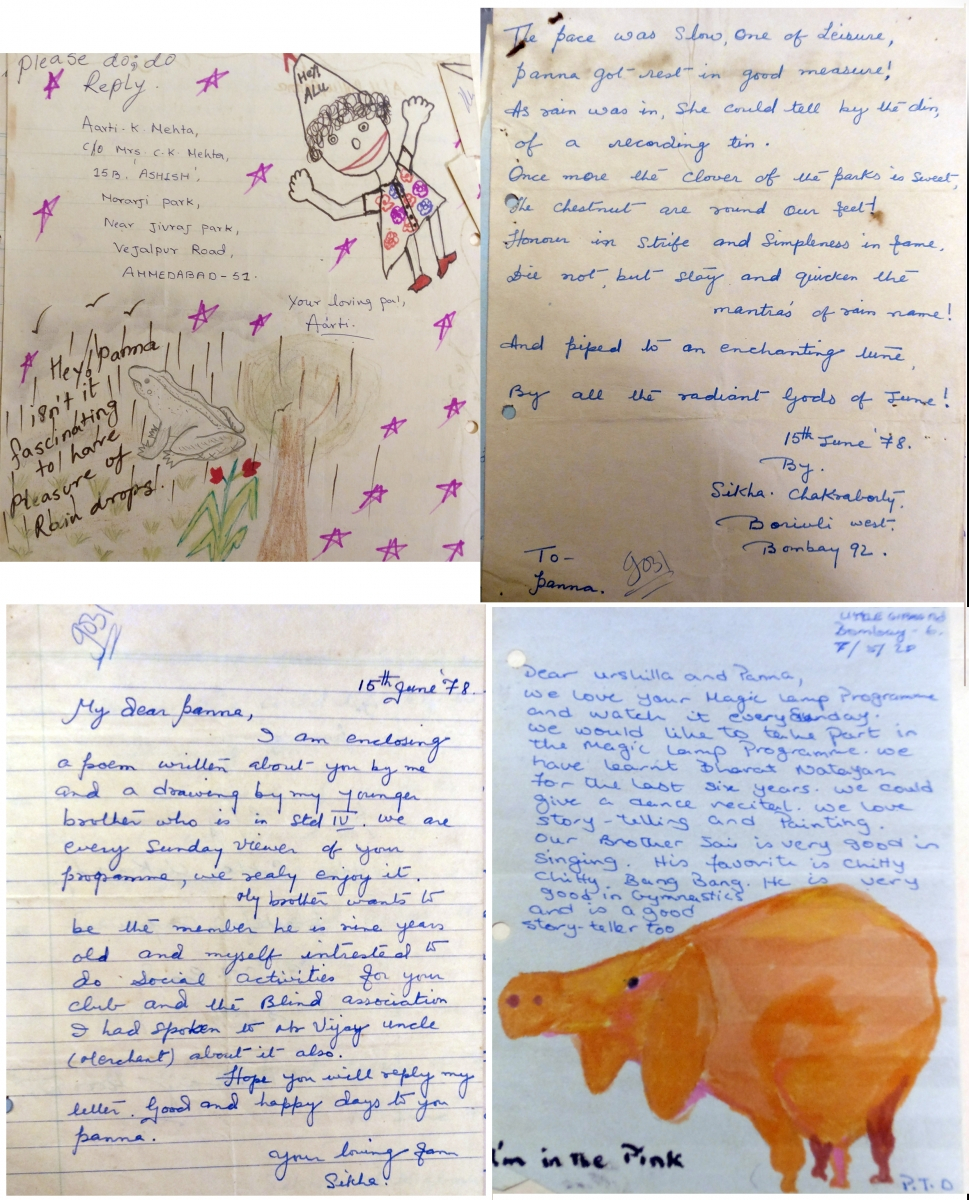 please do; do
Reply.
HeY
ALU
Aarti. K. Mehta,
C/o Mrs. C. K. Mehta,
15B, 'ASHISH',
Morarji park,
Near Jivraj park,
Vejalpur Road,
AHMEDABAD - 51.
Your loving pal,
Aarti.
Hey! panna
isn't it
fascinating
to have
pleasure of
Rain drops.
The pace was Slow, One of Leisure,
panna got rest in good measure!
As rain was in, She could tell by the din,
of a recording tin.
Once more the clover of the parks is sweet,
The chestnut are round our feet!
Honour in Strife and Simpleness in fame,
Die not, but stay and quicken the
mantra's of rain name!
And piped to an enchanting tune,
By all the radiant Gods of June!
15th June '78.
By.
Sikha. Chakraborty.
Borivli west.
Bombay 92.
To-
panna.
903/
903/
15th June '78.
My dear panna,
I am enclosing
a poem written about you by me
and a drawing by my younger
brother who is in Std IV. We are
every Sunday viewer of your
programme, we realy enjoy it.
My brother wants to
be the member he is nine years
old and myself intrested to
do Social activities for your
club and the Blind association
I had spoken to Mr Vijay uncle
(Merchant) about it also.
Hope you will reply my
letter. Good and happy days to you
panna.
Your loving fan
Sikha.
LITTLE GIBBS RD
Bombay - 6.
Dear Urshilla and Panna,
we love your Magic Lamp Programme
and watch it every Sunday.
we would like to take Part in
the Magic Lamp Programme. we
have learnt Bharat Natayan
For the last six years. we could
give a dance recital. we love
story-telling and Painting.
Our Brother Sair is very good in
Singing. His favorite is Chitty
Chitty Bang Bang. He is very
good in Gymnastics
and is a good
story-teller too
I'm in the Pink
P.T.O